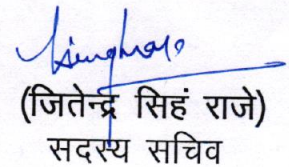 (जितेन्द्र सिहं राजे)
सदस्य सचिव